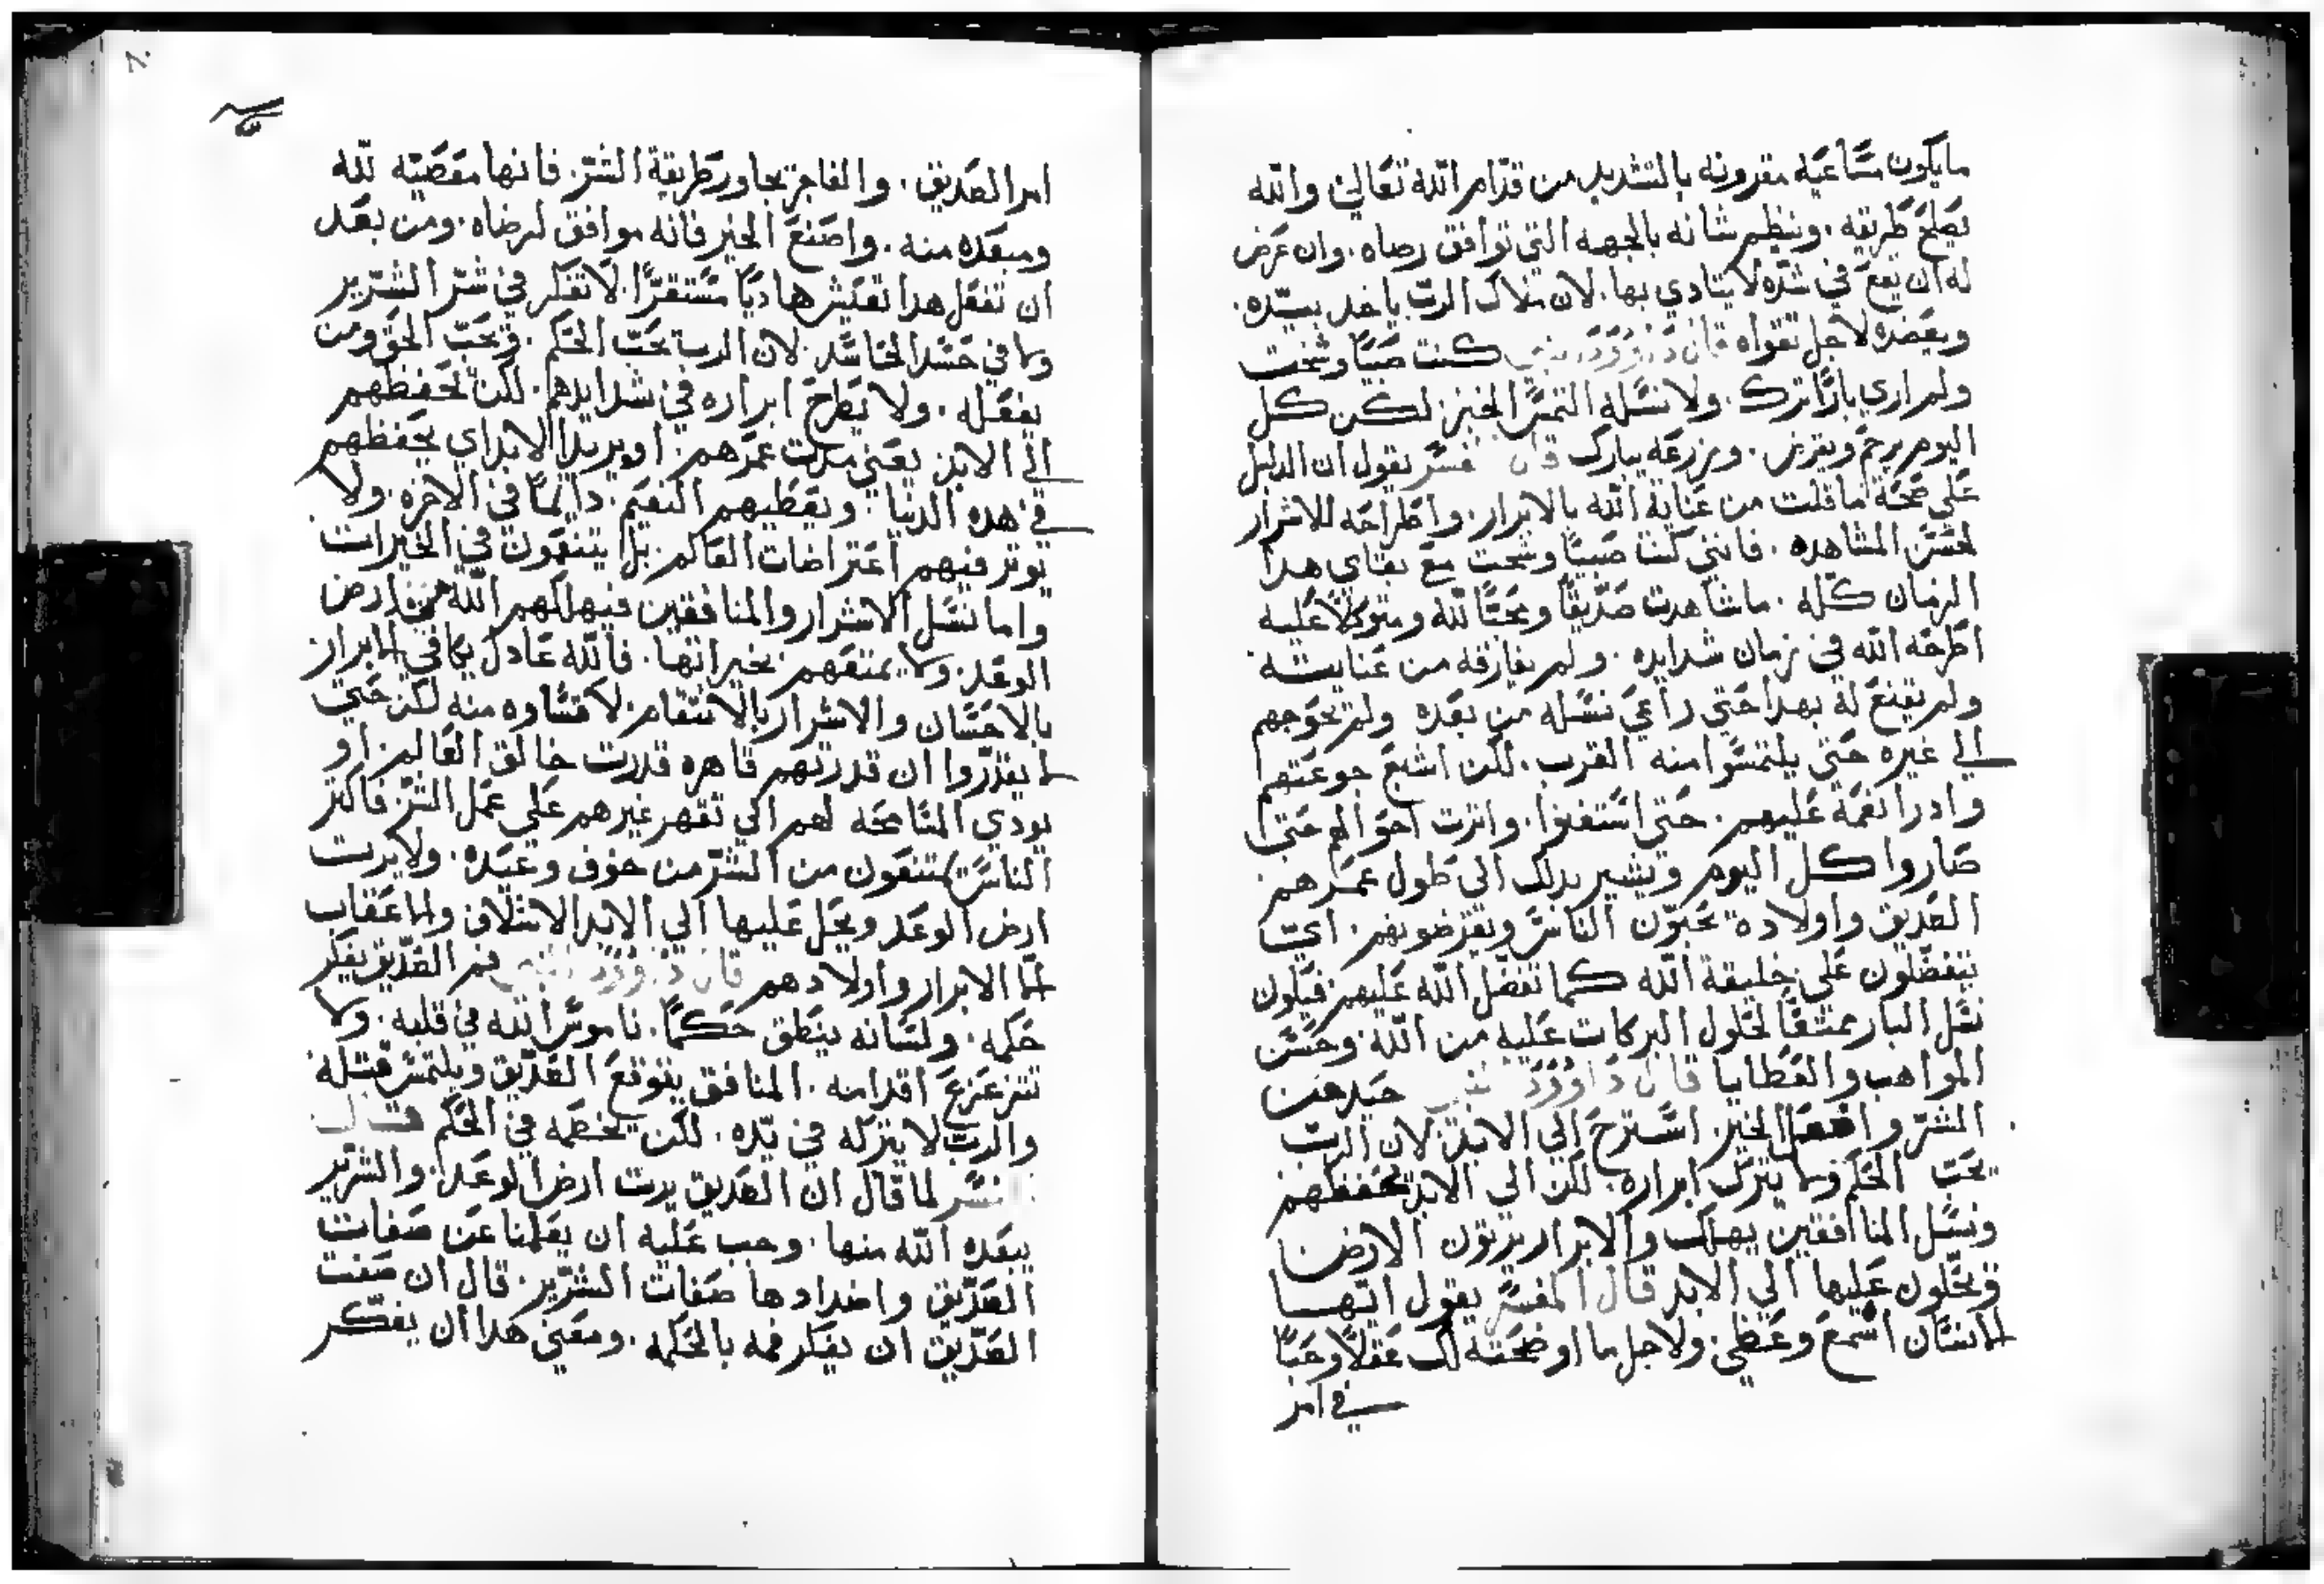 ما يكون مساعيه مقرونه بالتشديد من قدام الله تعالي والله
يصلح طريقه . وينظم شانه بالجهه التي توافق رضاه . وان عرض
له ان يقع في شده لا يتادي بها . لان ملاك الرب ياخد بيده .
ويعضده لاجل تقواه قال داوود النبي كنت صبيا وشخت
ولم اري بارا ترك . ولا نسله التمس الخبز لكن كل
اليوم يرحم ويقرض . وزرعه يبارك قال المفسر يقول ان الدليل
علي صحة ما قلت من عناية الله بالابرار . واطراحه للاشرار
لحسن المشاهده . فانني كنت صبيا وشخت مع بقاي هدا
الزمان كله . ما شاهدت صديقا ومحبا لله ومتوكلا عليه
اطرحه الله في زمان شدايده . ولم يفارقه من عنايته
ولم يقنع له بهدا حتي راعي نسله من بعده ولم يحوجهم
الي غيره حتي يلتمسوا منه القرب . لكن اشبع جوعتهم
وادر انعمه عليهم . حتي استغنوا . واثرت احوالهم حتي
صاروا كل اليوم ويشير بدلك الي طول عمرهم
الصديق واولاده يحبون الناس ويقرضونهم . اي
يتفضلون علي خليقة الله كما تفضل الله عليهم فيكون
نسل البار مستحقا لحلول البركات عليه من الله وحسن
المواهب والعطايا قال داوود النبي حيد عن
الشر وافعل الخير . استرح الي الابد . لان الرب
يحب الحكم ولا يترك ابراره . لكن الي الابد يحفظهم
ونسل المنافقين يهلك والابرار يرتون الارض
ويحلون عليها الي الابد قال المفسر يقول ايها
الانسان اسمع وعظي . ولاجل ما اوضحته لك عقلا وحبا
في امر
امر الصديق . والفاجر يجاوز طريقة الشر . فانها مغضبه لله
ومبعده منه . واصنع الخير فانه موافق لرضاه . ومن بعد
ان تفعل هدا تعيش هاديا مستقرا . لا تفكر في شر الشرير
ولا في حسد الحاسد . لان الرب يحب الحكم . ويحب الحق ومن
يفعله . ولا يطرح ابراره في شدايدهم . لكن يحفظهم
الي الابد . يعني مدت عمرهم . او يريد الابد اي يحفظهم
في هده الدنيا . ويعطيهم النعيم . دايما في الاخره . ولا
يوتر فيهم اعتراضات العالم . بل يتنعمون في الخيرات
واما نسل الاشرار والمنافقين فيهلكهم الله من ارض
الوعد . ولا يمتعهم بخيراتها . فالله عادل يكافي الابرار
بالاحسان والاشرار بالانتقام . لا قساوه منه لكن حتي
لا يقدروا ان قدرتهم قاهره قدرت خالق العالم . او
يودي المسامحه لهم الي تقهر غيرهم علي عمل الشر . فاكتر
الناس يمتنعون من الشر من خوف وعيده . ولا يرت
ارض الوعد ويحل عليها الي الابد الا
الا الابرار واولادهم قال داوود النبي فم الصديق يفكر
حكمه . ولسانه ينطق حكما . ناموس الله في قلبه . ولا
تتزعزع اقدامه . المنافق يتوقع الصديق ويلتمس قتله
والرب لا يتركه في يده . لكن يخصمه في الحكم قال
المفسر لما قال ان الصديق يرت ارض الوعد . والشرير
يبعده الله منها . وجب عليه ان يعلمنا عن صفات
الصديق واضدادها صفات الشرير . قال ان صفت
الصديق ان يفكر فمه بالحكمه . ومعني هدا ان يفكر